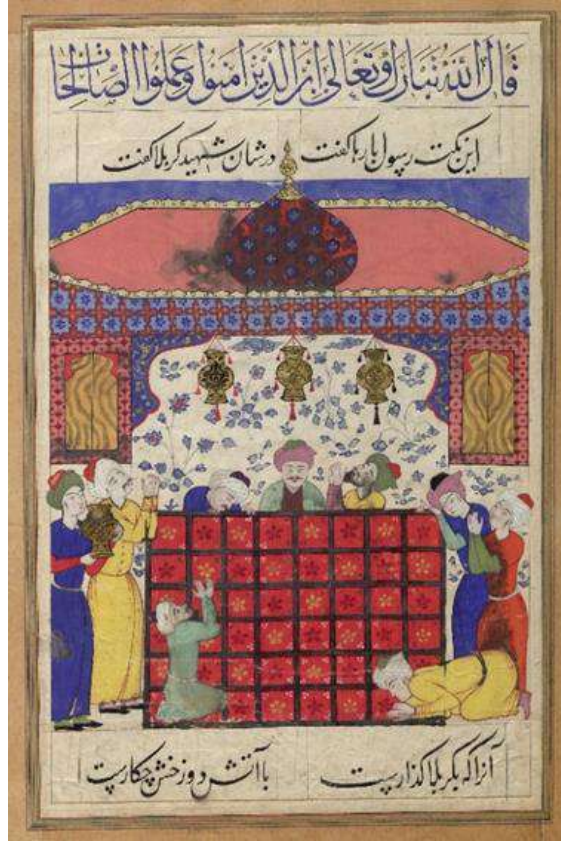 قال الله تبارک وتعالی ان الذین امنوا وعملوا الصالحات
این نکته رسول بارها گفت در شان شهید کربلا گفت
آنرا که بکربلا گذاریست
با آتش دوزخش چکاریست